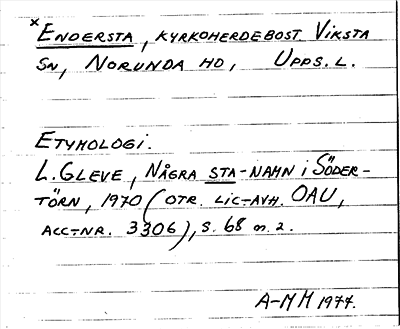 ×ENDERSTA, KYRKOHERDEBOST. VIKSTA
SN, NORUNDA HD, UPPS. L.
ETYMOLOGI.
L. GLEVE, NÅGRA STA-NAMN I SÖDER-
TÖRN, 1970 (OTR. LIC-AVH. OAU,
ACC-NR. 3306), S. 68 M. 2.
A-MM 1977.